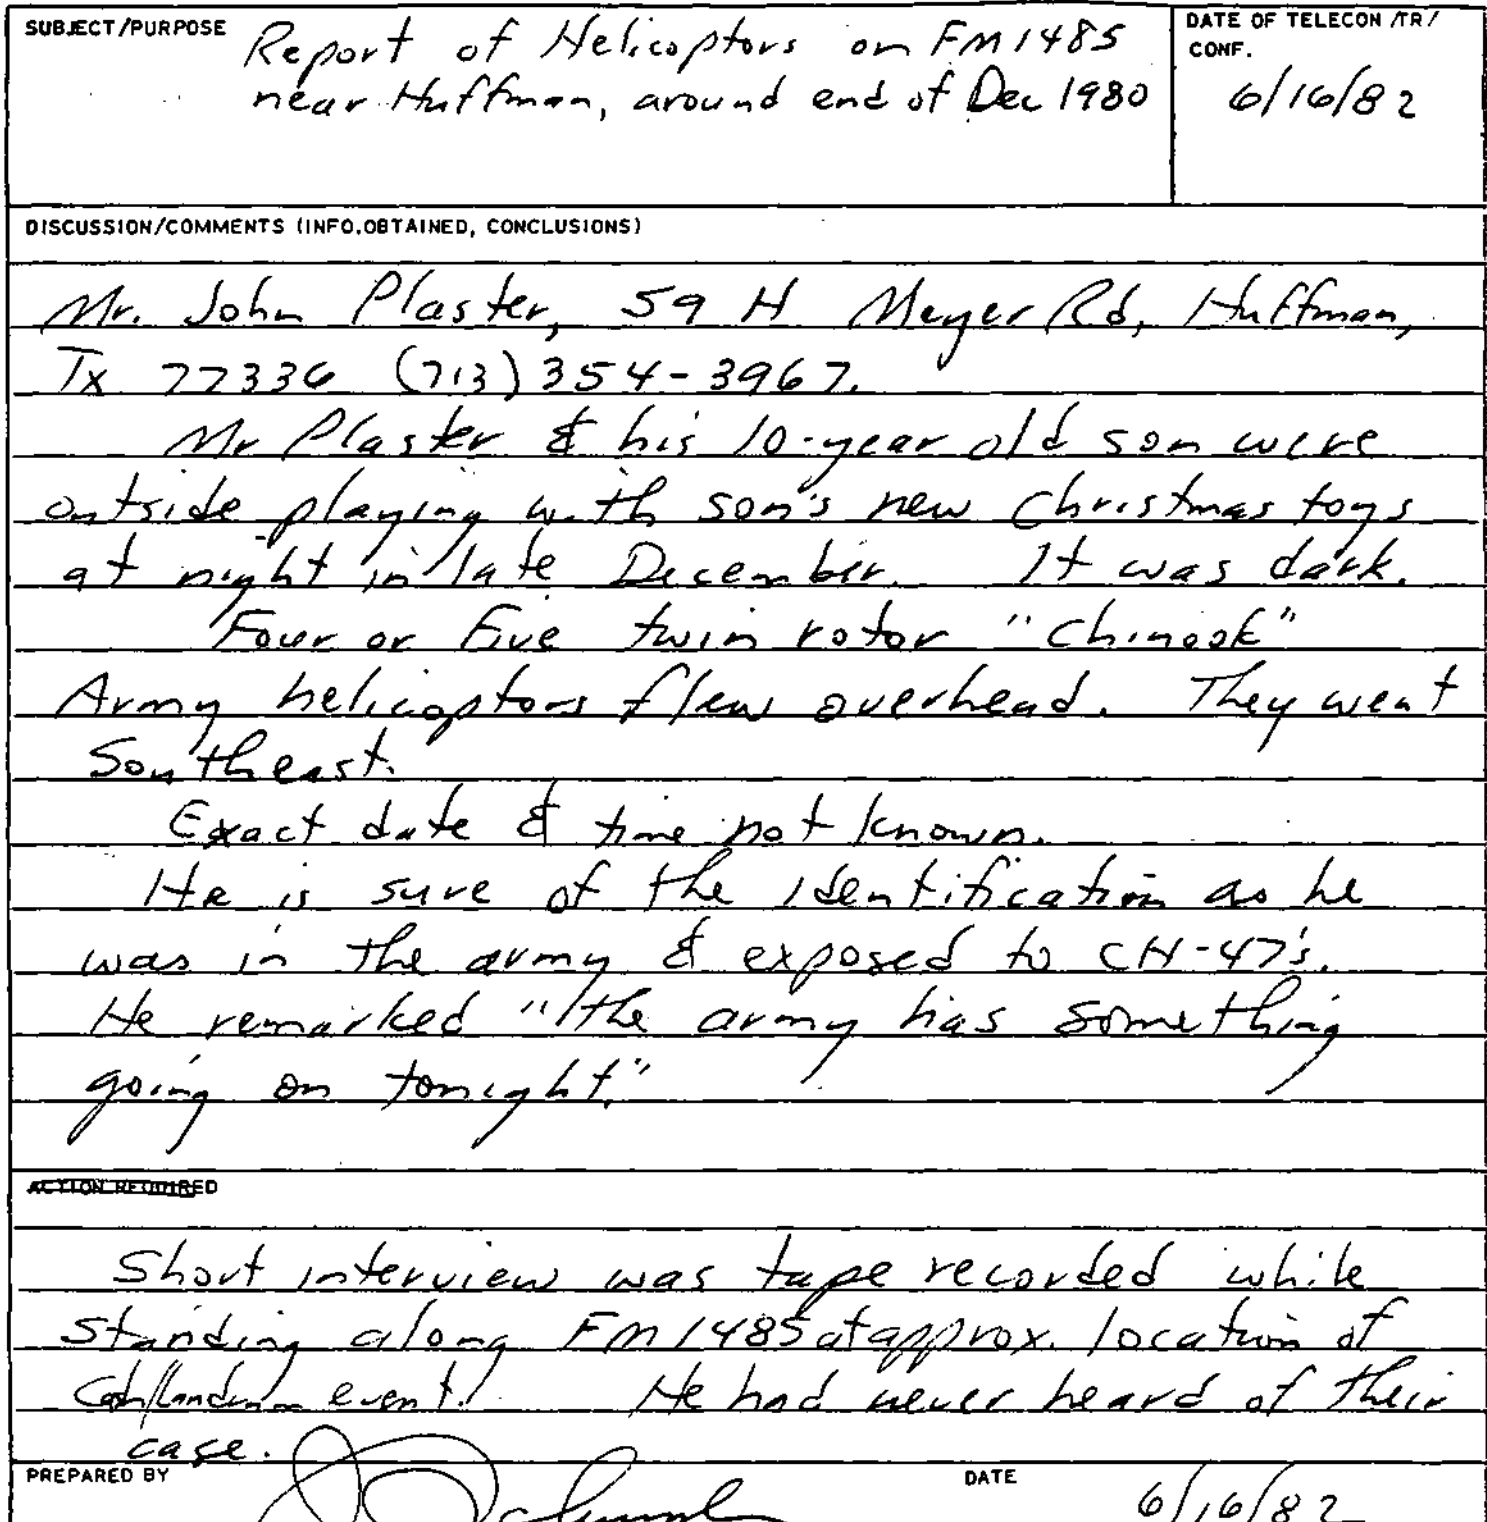 SUBJECT/PURPOSE
Report of Helicoptors on FM1485
near Huffman, around end of Dec 1980
DATE OF TELECON /TR/
CONF.
6/16/82
DISCUSSION/COMMENTS (INFO.OBTAINED, CONCLUSIONS)
Mr. John Plaster, 59 H Meyer Rd, Huffman,
Tx 77336 (713) 354-3967.
Mr Plaster & his 10-year old son were
outside playing with son's new Christmas toys
at night in late December. It was dark.
Four or Five twin rotor "Chinook"
Army helicoptors flew overhead. They went
Southeast.
Exact date & time not known.
He is sure of the identification as he
was in the army & exposed to CH-47's.
He remarked "the army has something
going on tonight."
ACTION REQUIRED
Short interview was tape recorded while
standing along FM1485 at approx. location of
Cash/Landrum event. He had never heard of their
case.
PREPARED BY
DATE
6/16/82